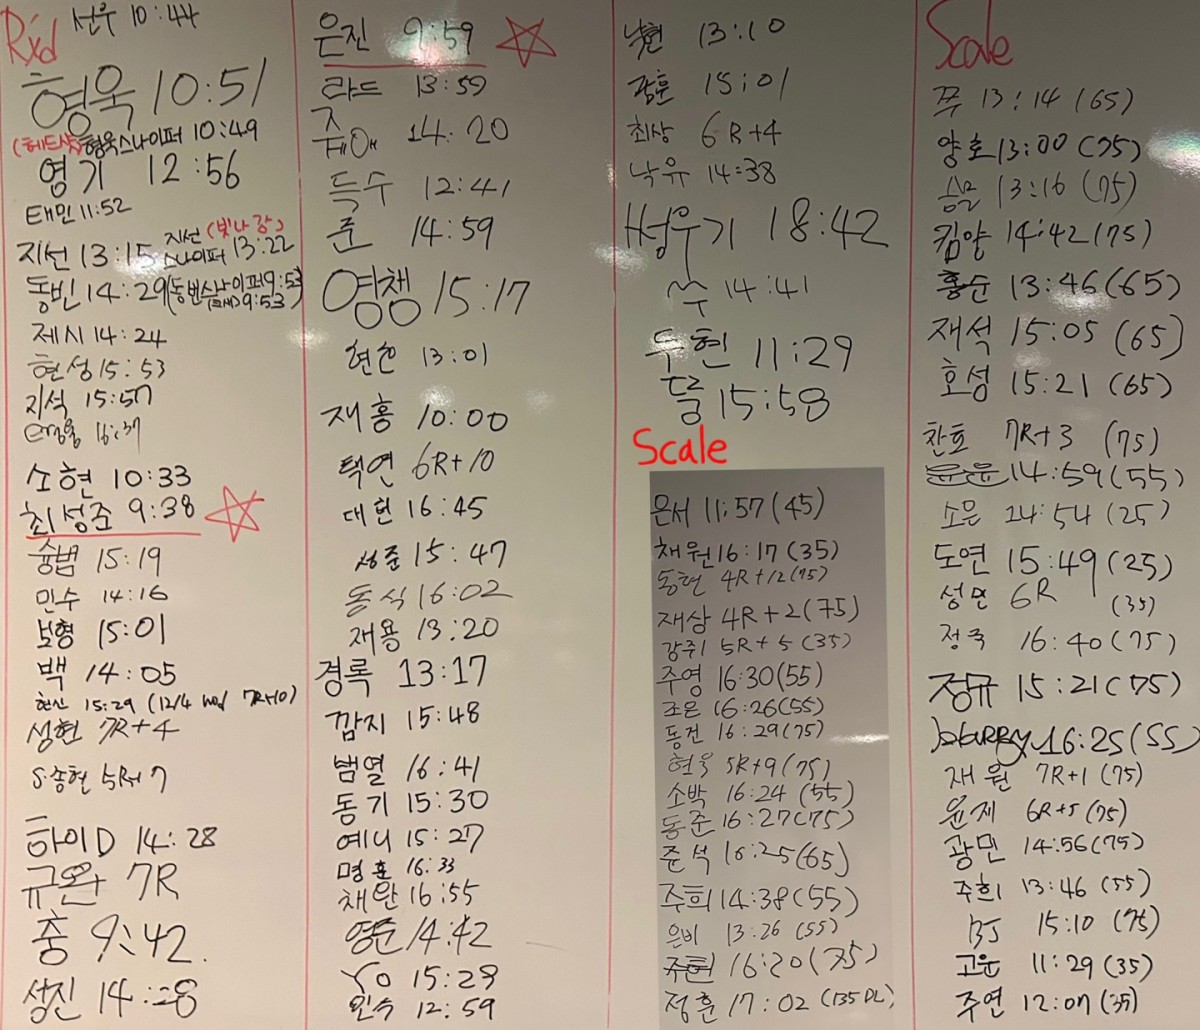 Rxd
선우 10:44
형욱 10:51
(헤드샷) 형욱스나이퍼 10:49
영기 12:56
태민 11:52
지선 13:15 지선 (빛나 강) 스나이퍼 13:22
동빈 14:29 (동빈스나이퍼 9:53
9:53
제시 14:24
현성 15:53
지석 15:57
16:37
소현 10:33
최성준 9:38
슝범 15:19
민수 14:16
보형 15:01
백 14:05
현산 15:29 (12/4 wod 7R+10)
성현 7R+4
S.송현 5R+7
하이D 14:28
규완 7R
충 9:42
성진 14:28
은진 9:59
라드 13:59
쥬 14:20
득수 12:41
준 14:59
영챙 15:17
현순 13:01
재홍 10:00
택연 6R+10
대헌 16:45
성준 15:47
동식 16:02
재용 13:20
경록 13:17
깜지 15:48
범열 16:41
동기 15:30
예니 15:27
명훈 16:33
채완 16:55
영준 14:42
YO 15:28
민수 12:59
낙현 13:10
광훈 15:01
최상 6R+4
낙유 14:38
18:42
수 14:41
두현 11:29
돌 15:58
Scale
은서 11:57 (45)
채원 16:17 (35)
동현 4R+12 (75)
재상 4R+2 (75)
강주1 5R+5 (35)
주영 16:30 (55)
조은 16:26 (55)
동건 16:29 (75)
현욱 5R+9 (75)
소박 16:24 (55)
동준 16:27 (75)
준석 16:25 (65)
주희 14:38 (55)
은비 13:26 (55)
16:20 (75)
정훈 17:02 (135 DL)
Scale
쭈 13:14 (65)
양호 13:00 (75)
승문 13:16 (75)
킴양 14:42 (75)
홍순 13:46 (65)
재석 15:05 (65)
호성 15:21 (65)
찬호 7R+3 (75)
윤윤 14:59 (55)
소은 14:54 (25)
도연 15:49 (25)
성민 6R (35)
정국 16:40 (75)
정규 15:21 (75)
16:25 (55)
재원 7R+1 (75)
윤제 6R+5 (75)
광민 14:56 (75)
주희 13:46 (55)
BJ 15:10 (75)
고운 11:29 (35)
주연 12:07 (35)